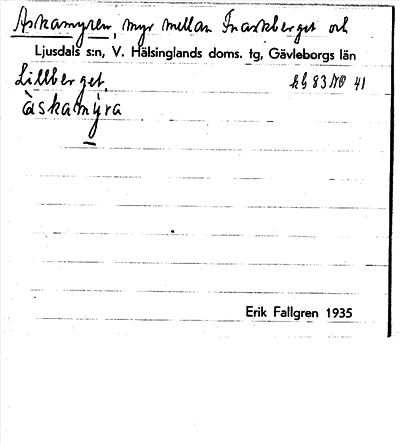 Askamyren, myr mellan Snarkberget och
Ljusdals s:n, V. Hälsinglands doms. tg, Gävleborgs län
Lillberget.
åskamỳra
Erik Fallgren 1935